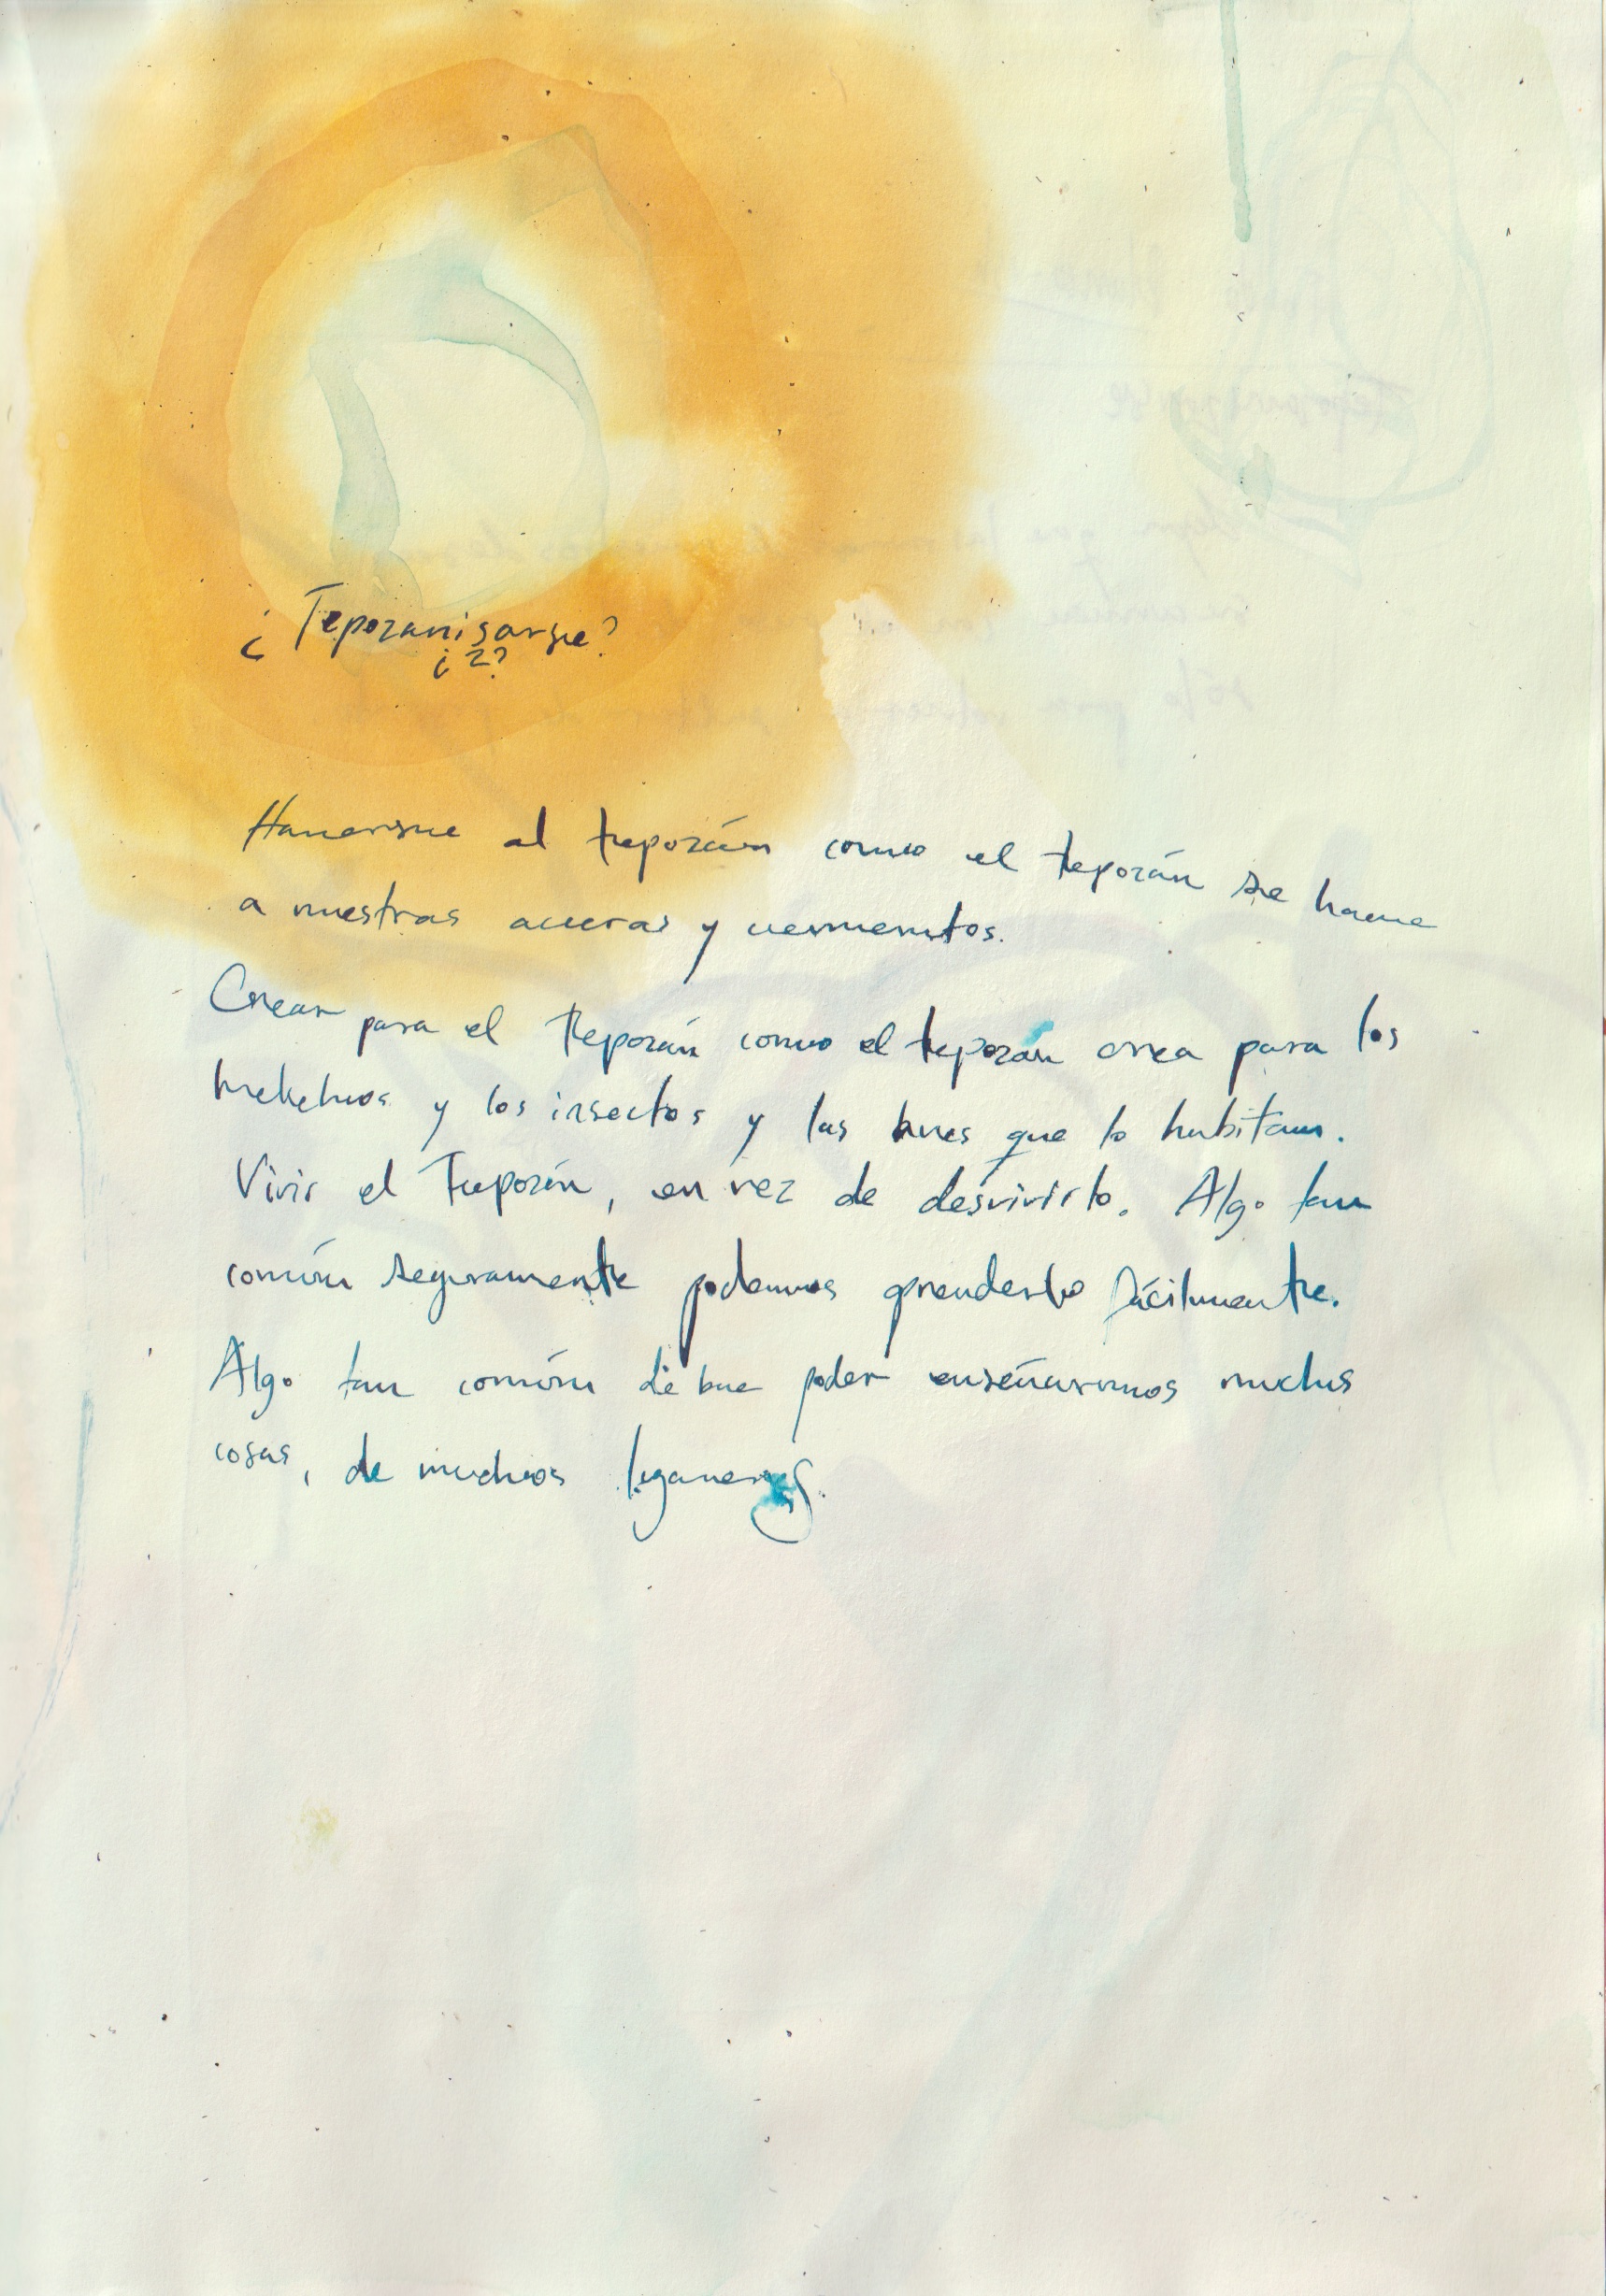 ¿Teporanisarse?
¿z?
Hacerse al teporán como el teporán se hace
a nuestras aceras y cementos.
Crear para el teporán como el teporán crea para los
helechos y los insectos y las aves que lo habitan.
Vivir el Teporán, en vez de desvivirlo. Algo tan
común seguramente podemos aprenderlo fácilmente.
Algo tan común debe poder enseñarnos muchas
cosas, de muchos